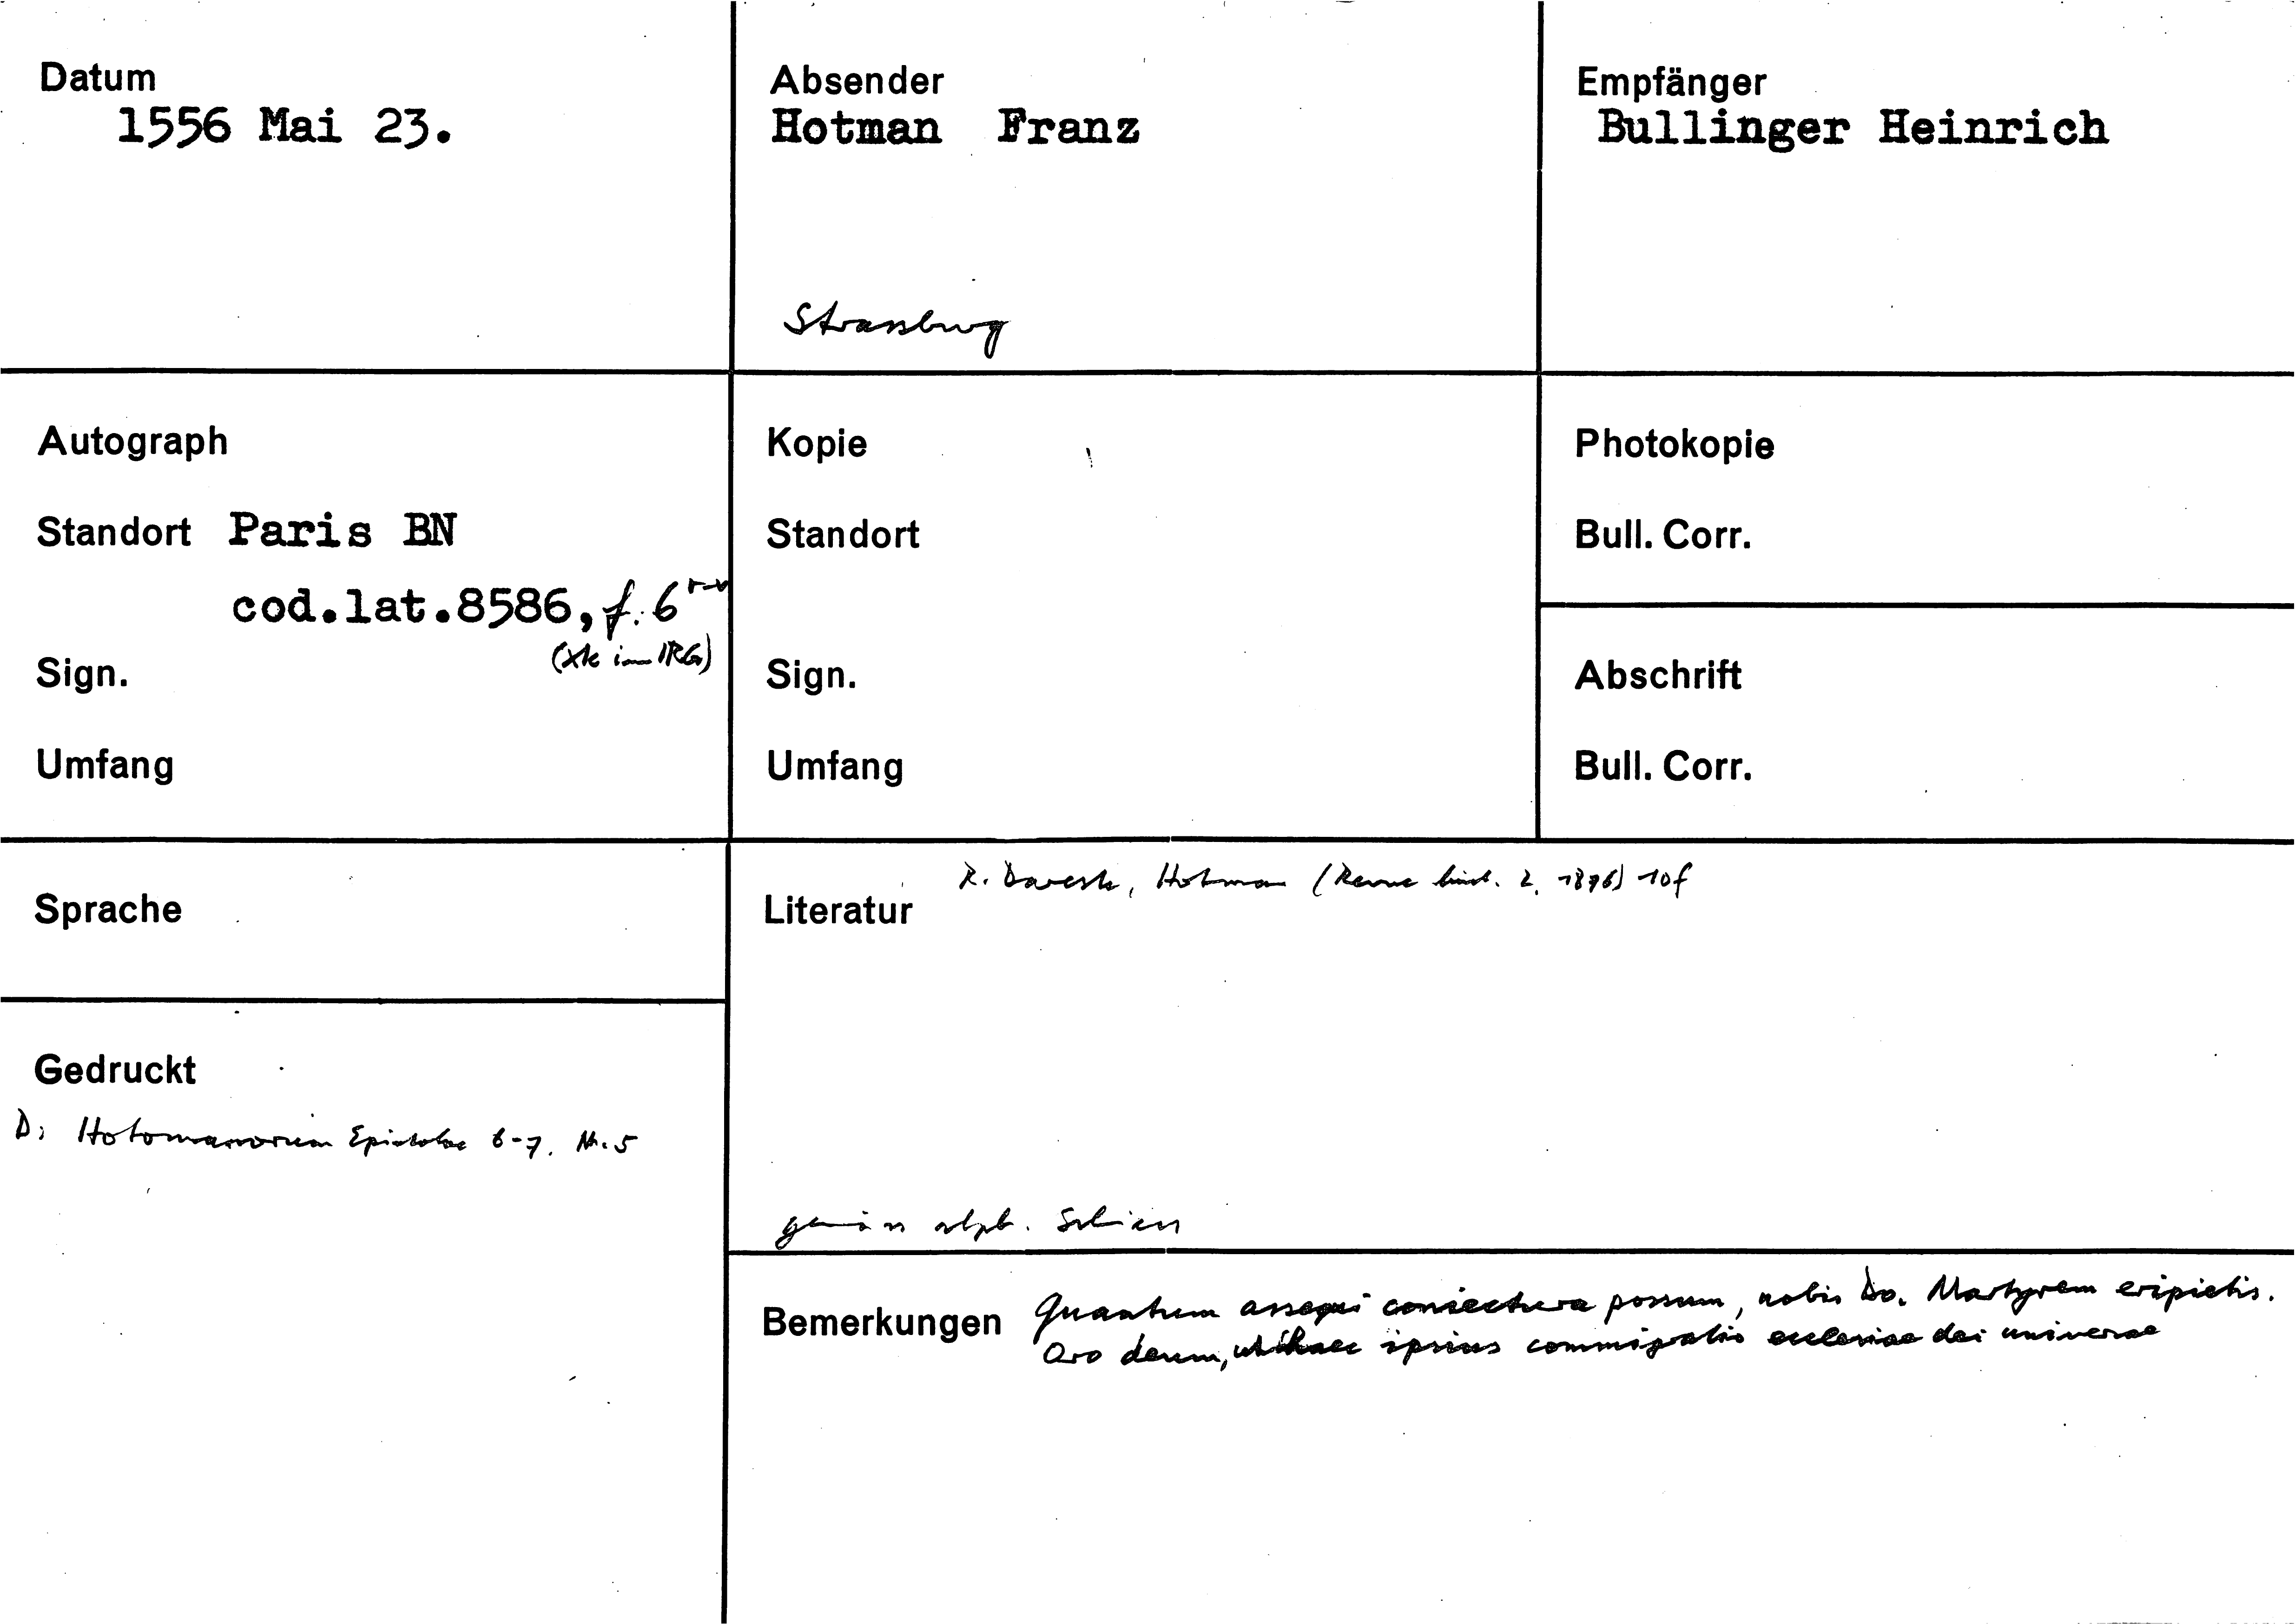 Datum
1556 Mai 23.
Absender
Hotman Franz
Strassburg
Empfänger
Bullinger Heinrich
Autograph
Standort Paris BN
cod.lat.8586, f. 6 r-v
(Xk im IRG)
Sign.
Umfang
Kopie
Standort
Sign.
Umfang
Photokopie
Bull. Corr.
Abschrift
Bull. Corr.
Sprache
Gedruckt
D: Hotomanorum Epistolae 6-7. Nr. 5
R. Dareste, Hotman (Revue hist. 2, 1876) 10f
Literatur
gemäss alph. Schiess
Bemerkungen Quantum assequi coniectura possum, nobis Do. Martyrem eripietis.
Oro deum, ut haec ipsius commigratio ecclesiae dei universae